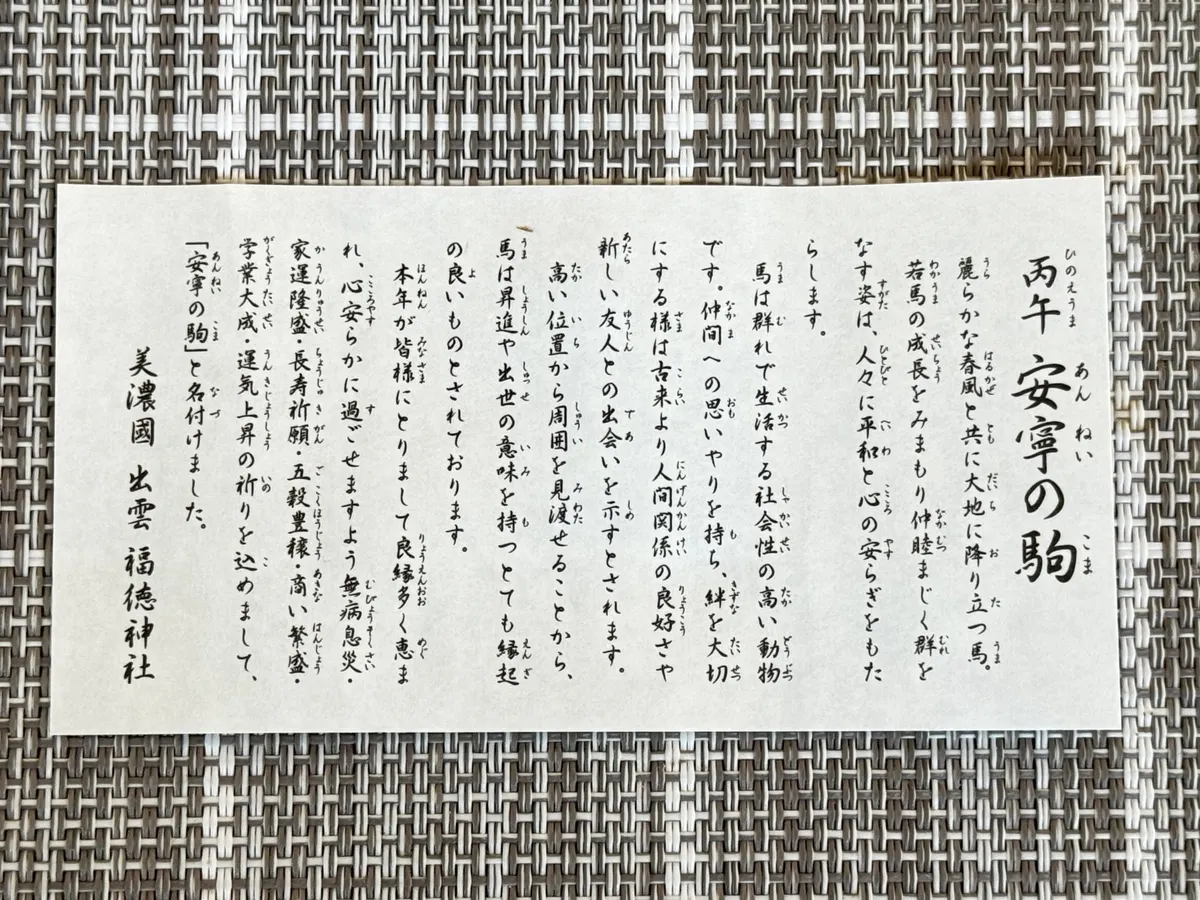 丙午 安寧の駒
麗らかな春風と共に大地に降り立つ馬。
若馬の成長をみまもり仲睦まじく群を
なす姿は、人々に平和と心の安らぎをもた
らします。
馬は群れで生活する社会性の高い動物
です。仲間への思いやりを持ち、絆を大切
にする様は古来より人間関係の良好さや
新しい友人との出会いを示すとされます。
高い位置から周囲を見渡せることから、
馬は昇進や出世の意味を持つとても縁起
の良いものとされております。
本年が皆様にとりまして良縁多く恵ま
れ、心安らかに過ごせますよう無病息災・
家運隆盛・長寿祈願・五穀豊穣・商い繁盛・
学業大成・運気上昇の祈りを込めまして、
「安寧の駒」と名付けました。
美濃國 出雲 福徳神社